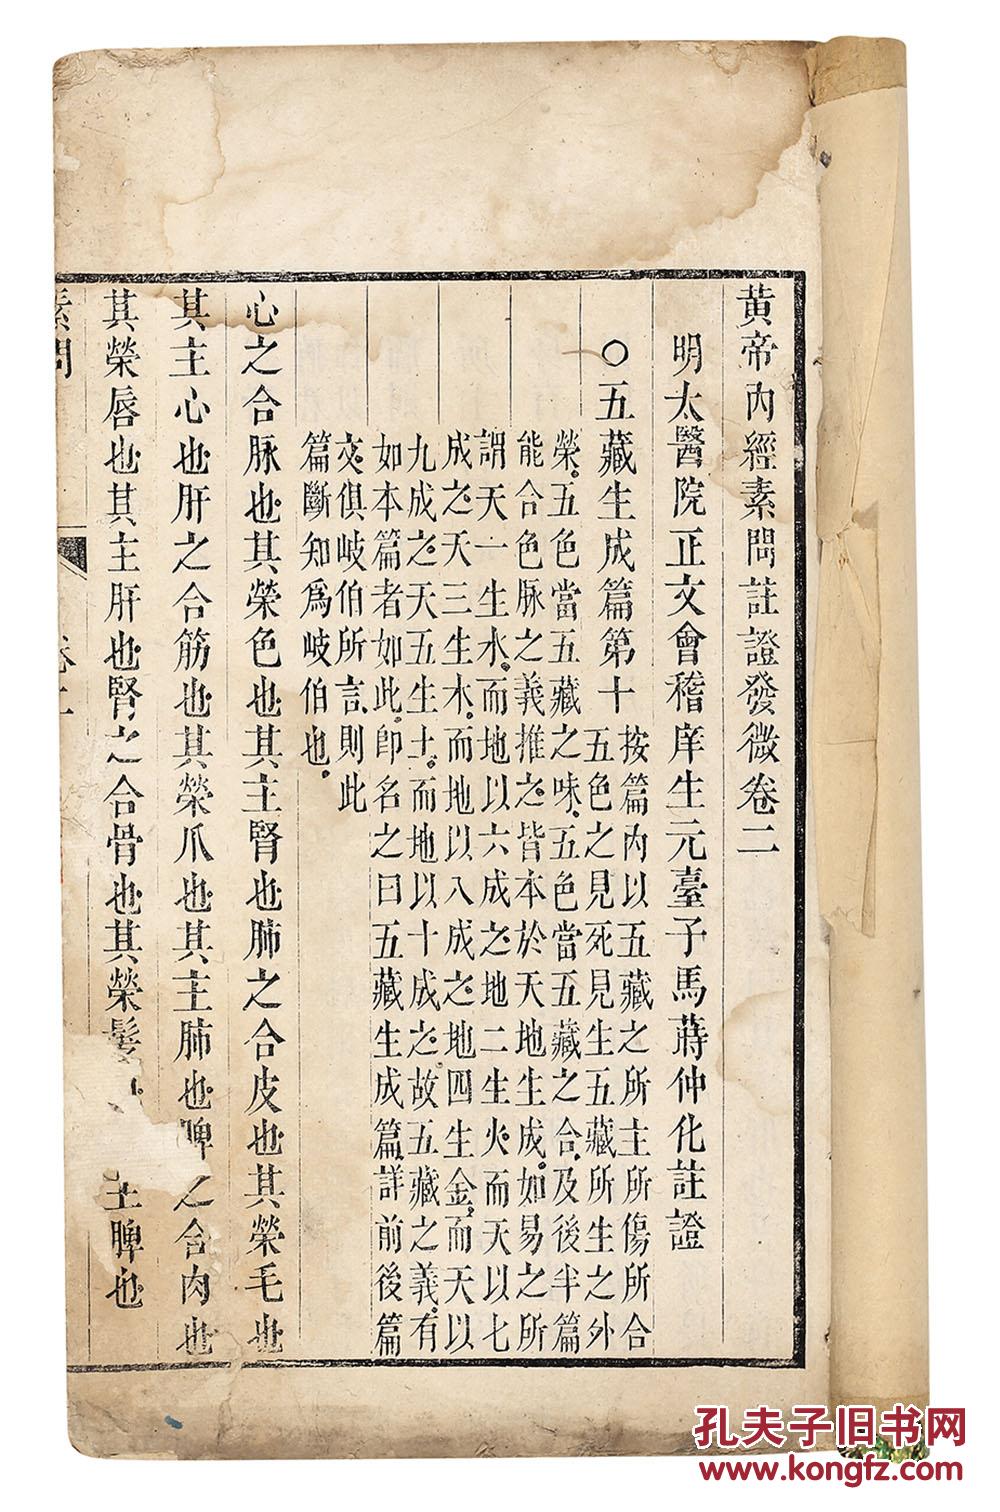 黃帝內經素問註證發微卷二
明太醫院正文會稽庠生元臺子馬蒔仲化註證
○五藏生成篇第十
按篇內以五藏之所主所傷所合
五色之見死見生五藏所生之外
榮。五色當五藏之味。五色當五藏之合。及後半篇
能合色脉之義推之。皆本於天地生成。如易之所
謂天一生水。而地以六成之。地二生火。而天以七
成之。天三生木。而地以八成之。地四生金。而天以
九成之。天五生土。而地以十成之。故五藏之義。有
如本篇者如此。卽名之曰五藏生成篇。詳前後篇
文俱岐伯所言。則此
篇斷知爲岐伯也。
心之合脉也其榮色也其主腎也肺之合皮也其榮毛也
其主心也肝之合筋也其榮爪也其主肺也脾之合肉也
其榮唇也其主肝也腎之合骨也其榮髮主脾也
素問 卷二
孔夫子旧书网
www.kongfz.com